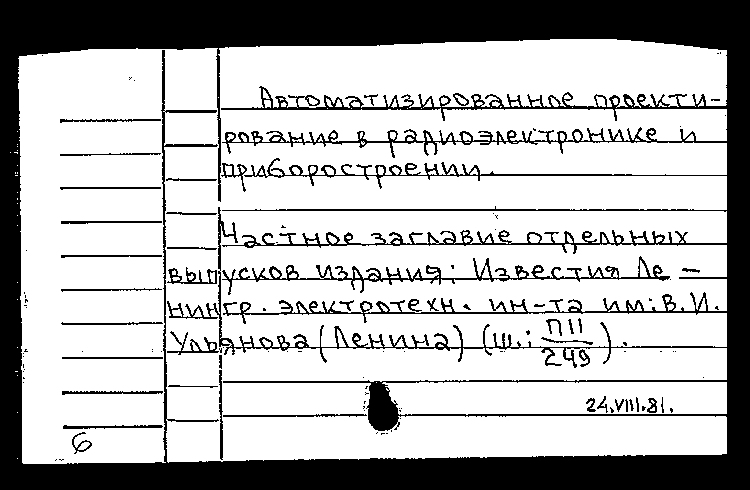 Автоматизированное проекти-
рование в радиоэлектронике и
приборостроении.
Частное заглавие отдельных
выпусков издания: Известия Ле-
нингр. электротехн. ин-та им: В.И.
Ульянова (Ленина) (ш.: П11/249).
24.VIII.81.
6